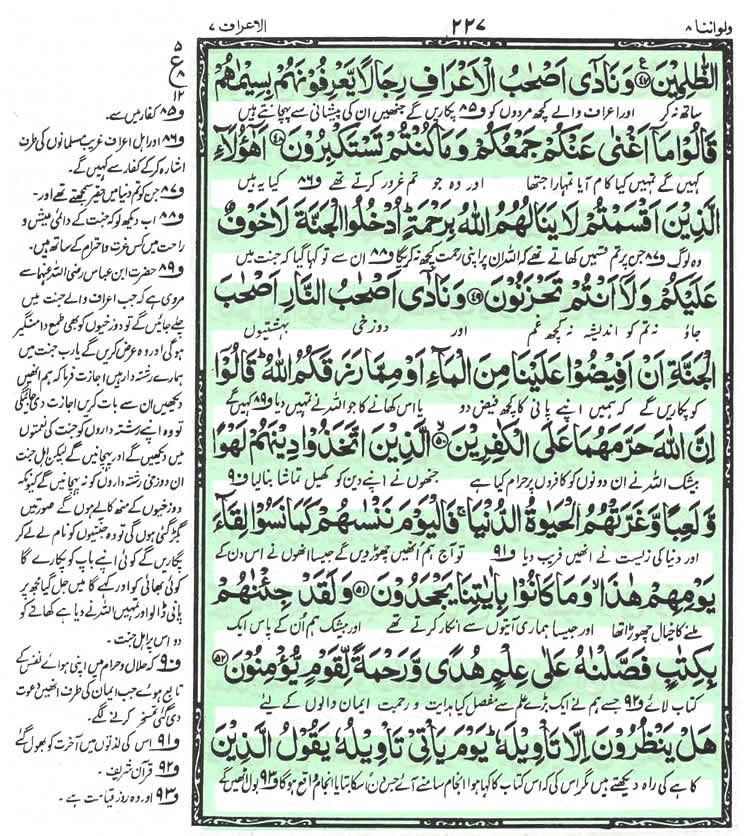 ولواننا ۸
۲۲۷
الاعراف ۷
الظّٰلِمِیْنَ ﴿۴۷﴾ وَ نَادٰۤی اَصْحٰبُ الْاَعْرَافِ رِجَالًا یَّعْرِفُوْنَهُمْ بِسِیْمٰىهُمْ
ساتھ نہ کر اور اعراف والے کچھ مردوں کو ف۸۵ پکاریں گے جنھیں ان کی پیشانی سے پہچانتے ہیں
قَالُوْا مَاۤ اَغْنٰی عَنْكُمْ جَمْعُكُمْ وَ مَا كُنْتُمْ تَسْتَكْبِرُوْنَ ﴿۴۸﴾ اَهٰۤؤُلَآءِ
کہیں گے تمہیں کیا کام آیا تمہارا جتھا اور وہ جو تم غرور کرتے تھے ف۸۶ کیا یہ ہیں
الَّذِیْنَ اَقْسَمْتُمْ لَا یَنَالُهُمُ اللّٰهُ بِرَحْمَةٍ ؕ اُدْخُلُوا الْجَنَّةَ لَا خَوْفٌ
وہ لوگ ف۸۷ جن پر تم قسمیں کھاتے تھے کہ اللہ ان پر اپنی رحمت کچھ نہ کریگا ف۸۸ ان سے تو کہا گیا کہ جنت میں
عَلَیْكُمْ وَ لَاۤ اَنْتُمْ تَحْزَنُوْنَ ﴿۴۹﴾ وَ نَادٰۤی اَصْحٰبُ النَّارِ اَصْحٰبَ
جاؤ نہ تم کو اندیشہ نہ کچھ غم اور دوزخی بہشتیوں
الْجَنَّةِ اَنْ اَفِیْضُوْا عَلَیْنَا مِنَ الْمَآءِ اَوْ مِمَّا رَزَقَكُمُ اللّٰهُ ؕ قَالُوْۤا
کو پکاریں گے کہ ہمیں اپنے پانی کا کچھ فیض دو یا اس کھانے کا جو اللہ نے تمہیں دیا ف۸۹ کہیں گے
اِنَّ اللّٰهَ حَرَّمَهُمَا عَلَی الْكٰفِرِیْنَ ﴿۵۰﴾ الَّذِیْنَ اتَّخَذُوْا دِیْنَهُمْ لَهْوًا
بیشک اللہ نے ان دونوں کو کافروں پر حرام کیا ہے جنھوں نے اپنے دین کو کھیل تماشا بنالیا ف۹۰
وَّ لَعِبًا وَّ غَرَّتْهُمُ الْحَیٰوةُ الدُّنْیَا ۚ فَالْیَوْمَ نَنْسٰىهُمْ كَمَا نَسُوْا لِقَآءَ
اور دنیا کی زیست نے انھیں فریب دیا ف۹۱ تو آج ہم انھیں چھوڑ دیں گے جیسا انھوں نے اس دن کے
یَوْمِهِمْ هٰذَا ۙ وَ مَا كَانُوْا بِاٰیٰتِنَا یَجْحَدُوْنَ ﴿۵۱﴾ وَ لَقَدْ جِئْنٰهُمْ
ملنے کا خیال چھوڑا تھا اور جیسا ہماری آیتوں سے انکار کرتے تھے اور بیشک ہم ان کے پاس ایک
بِكِتٰبٍ فَصَّلْنٰهُ عَلٰی عِلْمٍ هُدًی وَّ رَحْمَةً لِّقَوْمٍ یُّؤْمِنُوْنَ ﴿۵۲﴾
کتاب لائے ف۹۲ جسے ہم نے ایک بڑے علم سے مفصل کیا ہدایت و رحمت ایمان والوں کے لیے
هَلْ یَنْظُرُوْنَ اِلَّا تَاْوِیْلَهٗ ؕ یَوْمَ یَاْتِیْ تَاْوِیْلُهٗ یَقُوْلُ الَّذِیْنَ
کاہے کی راہ دیکھتے ہیں مگر اس کی کہ اس کتاب کا کہا ہوا انجام سامنے آئے جس دن اسکا بتایا انجام واقع ہوگا ف۹۳ بول اٹھیں گے
۵
ع
۸
۱۲
ف۸۵ کفار میں سے۔
ف۸۶ اور اہل اعراف غریب مسلمانوں کی طرف
اشارہ کر کے کفار سے کہیں گے۔
ف۸۷ جن کو تم دنیا میں حقیر سمجھتے تھے اور۔
ف۸۸ اب دیکھ لو کہ جنت کے دائمی عیش و
راحت میں کس عزت و احترام کے ساتھ ہیں۔
ف۸۹ حضرت ابن عباس رضی اللہ عنہما سے
مروی ہے کہ جب اعراف والے جنت میں
چلے جائیں گے تو دوزخیوں کو بھی طمع دامنگیر
ہوگی اور وہ عرض کریں گے یارب جنت میں
ہمارے رشتہ دار ہیں اجازت فرما کہ ہم انھیں
دیکھیں ان سے بات کریں اجازت دی جائیگی
تو وہ اپنے رشتہ داروں کو جنت کی نعمتوں
میں دیکھیں گے اور پہچانیں گے لیکن اہل جنت
ان دوزخی رشتہ داروں کو نہ پہچانیں گے کیونکہ
دوزخیوں کے منھ کالے ہوں گے صورتیں
بگڑ گئی ہوں گی تو وہ جنتیوں کو نام لے لے کر
پکاریں گے کوئی اپنے باپ کو پکارے گا
کوئی بھائی کو اور کہے گا میں جل گیا مجھ پر
پانی ڈالو اور تمہیں اللہ نے دیا ہے کھانے کو
دو اس پر اہل جنت۔
ف۹۰ کہ حلال و حرام میں اپنی ہوائے نفس کے
تابع ہوئے جب ایمان کی طرف انھیں دعوت
دی گئی تمسخر کرنے لگے۔
ف۹۱ اس کی لذتوں میں آخرت کو بھول گئے
ف۹۲ قرآن شریف۔
ف۹۳ اور وہ روز قیامت ہے۔